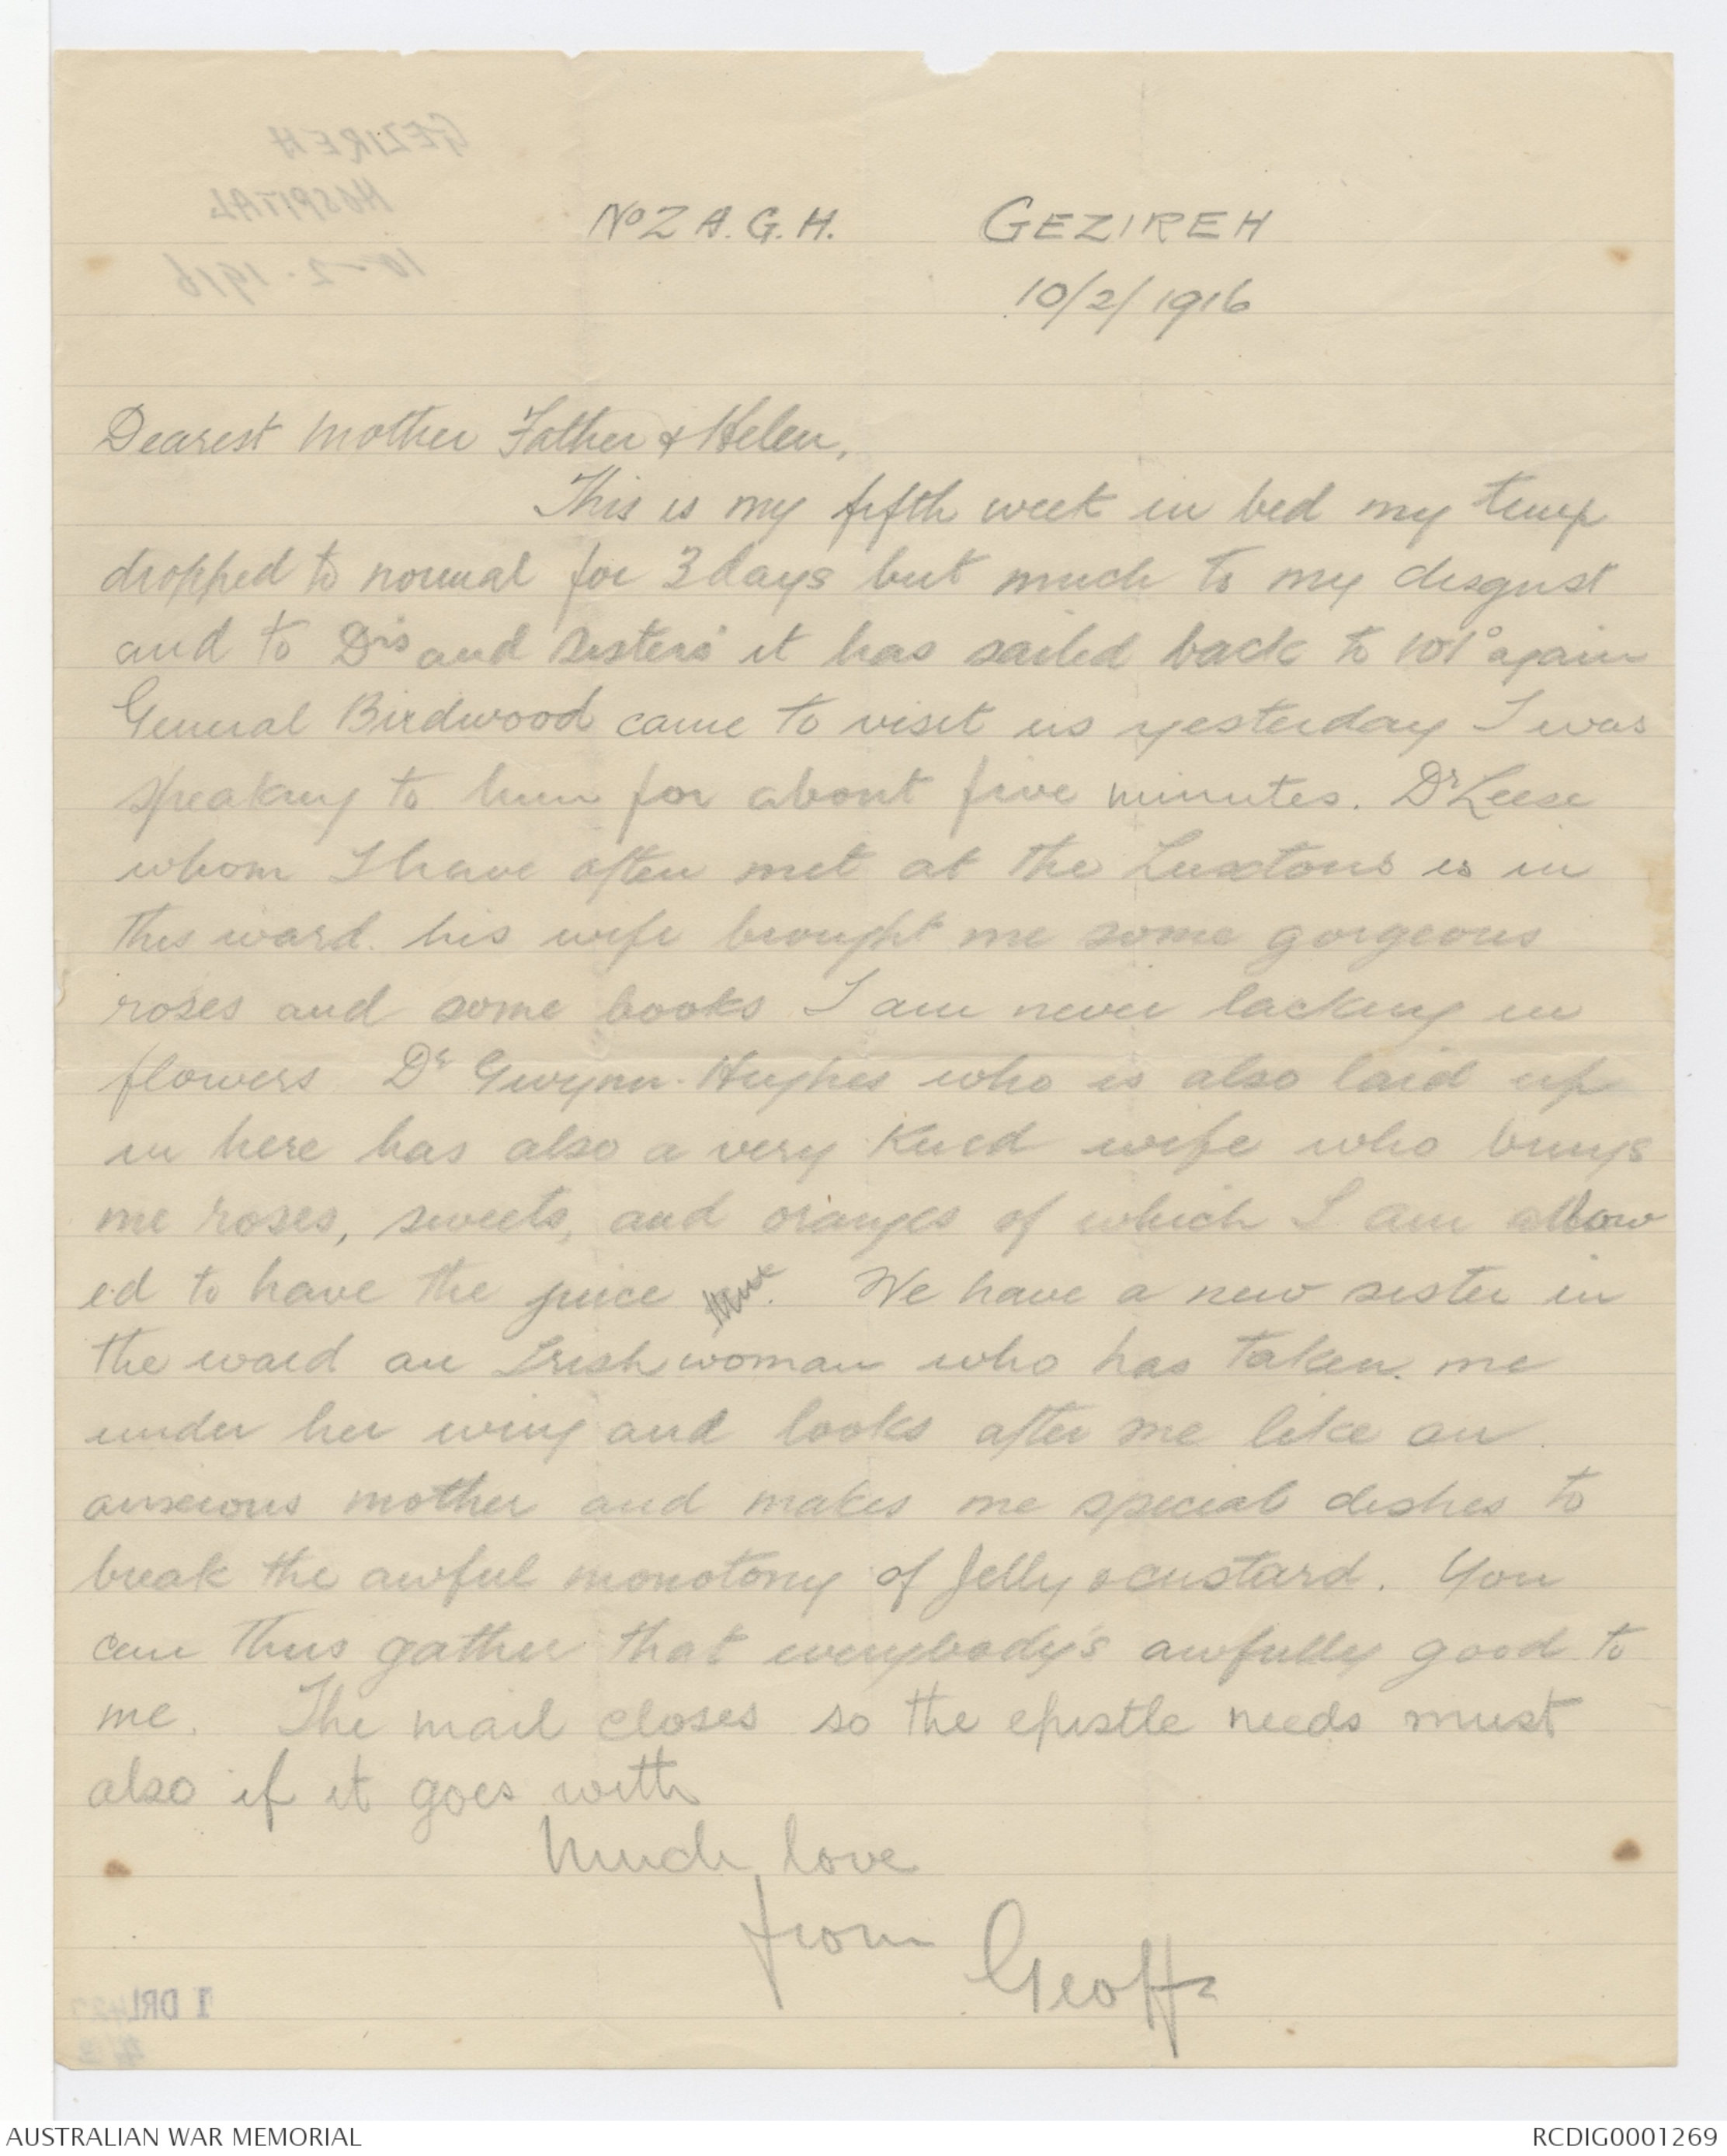 GEZIREH
HOSPITAL
10-2-1916
No 2 A.G.H. GEZIREH
10/2/1916
Dearest Mother Father & Helen,
This is my fifth week in bed my temp
dropped to normal for 3 days but much to my disgust
and to Drs and Sisters' it has sailed back to 101° again
General Birdwood came to visit us yesterday I was
speaking to him for about five minutes. Dr Leese
whom I have often met at the Luxtons is in
this ward. his wife brought me some gorgeous
roses and some books I am never lacking in
flowers Dr Gwynn-Hughes who is also laid up
in here has also a very kind wife who brings
me roses, sweets, and oranges of which I am allow
ed to have the juice. We have a new sister in
the ward an Irish woman who has taken me
under her wing and looks after me like an
anxious mother and makes me special dishes to
break the awful monotony of Jelly & custard. You
can thus gather that everybody's awfully good to
me. The mail closes so the epistle needs must
also if it goes with
Much love
from Geoff
1 DRL
AUSTRALIAN WAR MEMORIAL RCDIG0001269